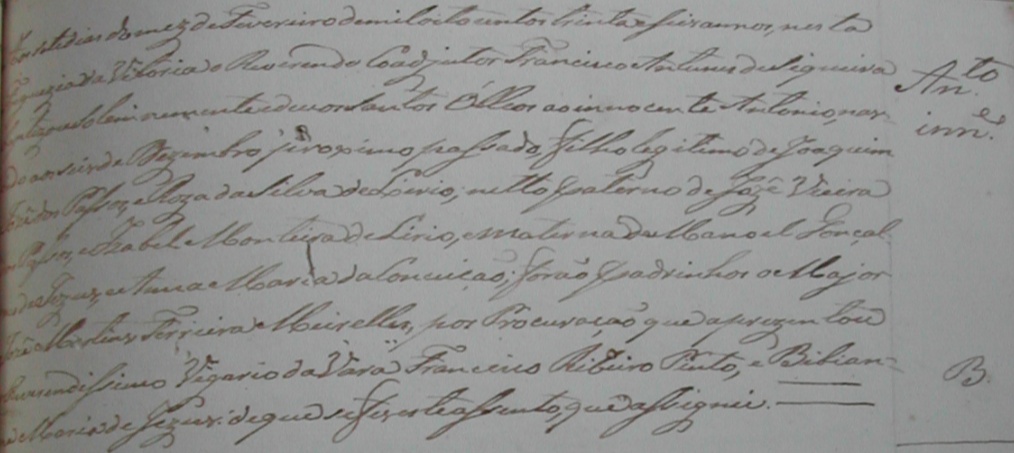 Aos sete dias do mez de Fevereiro de mil oito centos trinta e seis annos, nesta
Freguezia da Vitoria o Reverendo Coadjutor Francisco Antunes de Siqueira
An.to
baptizou solemnemente e deu os Santos Olleos ao innocente Antonio, nas-
inn.e
cido aos seis de Dezembro proximo passado, filho legitimo de Joaquim
José dos Passos, e Roza da Silva de Lirio; netto paterno de Jozê Vieira
dos Passos, e Izabel Monteira de Lirio, e materna de Manoel Gonçal-
ves de Jezuz, e Anna Maria da Conceição; forão padrinhos o Major
José Martins Ferreira Meirelles, por Procuração que aprezentou
o Reverendissimo Vigario da Vara Francisco Ribeiro Pinto, e Bibian-
B.
na Maria de Jezuz: de que se fez este assento, que assignei.